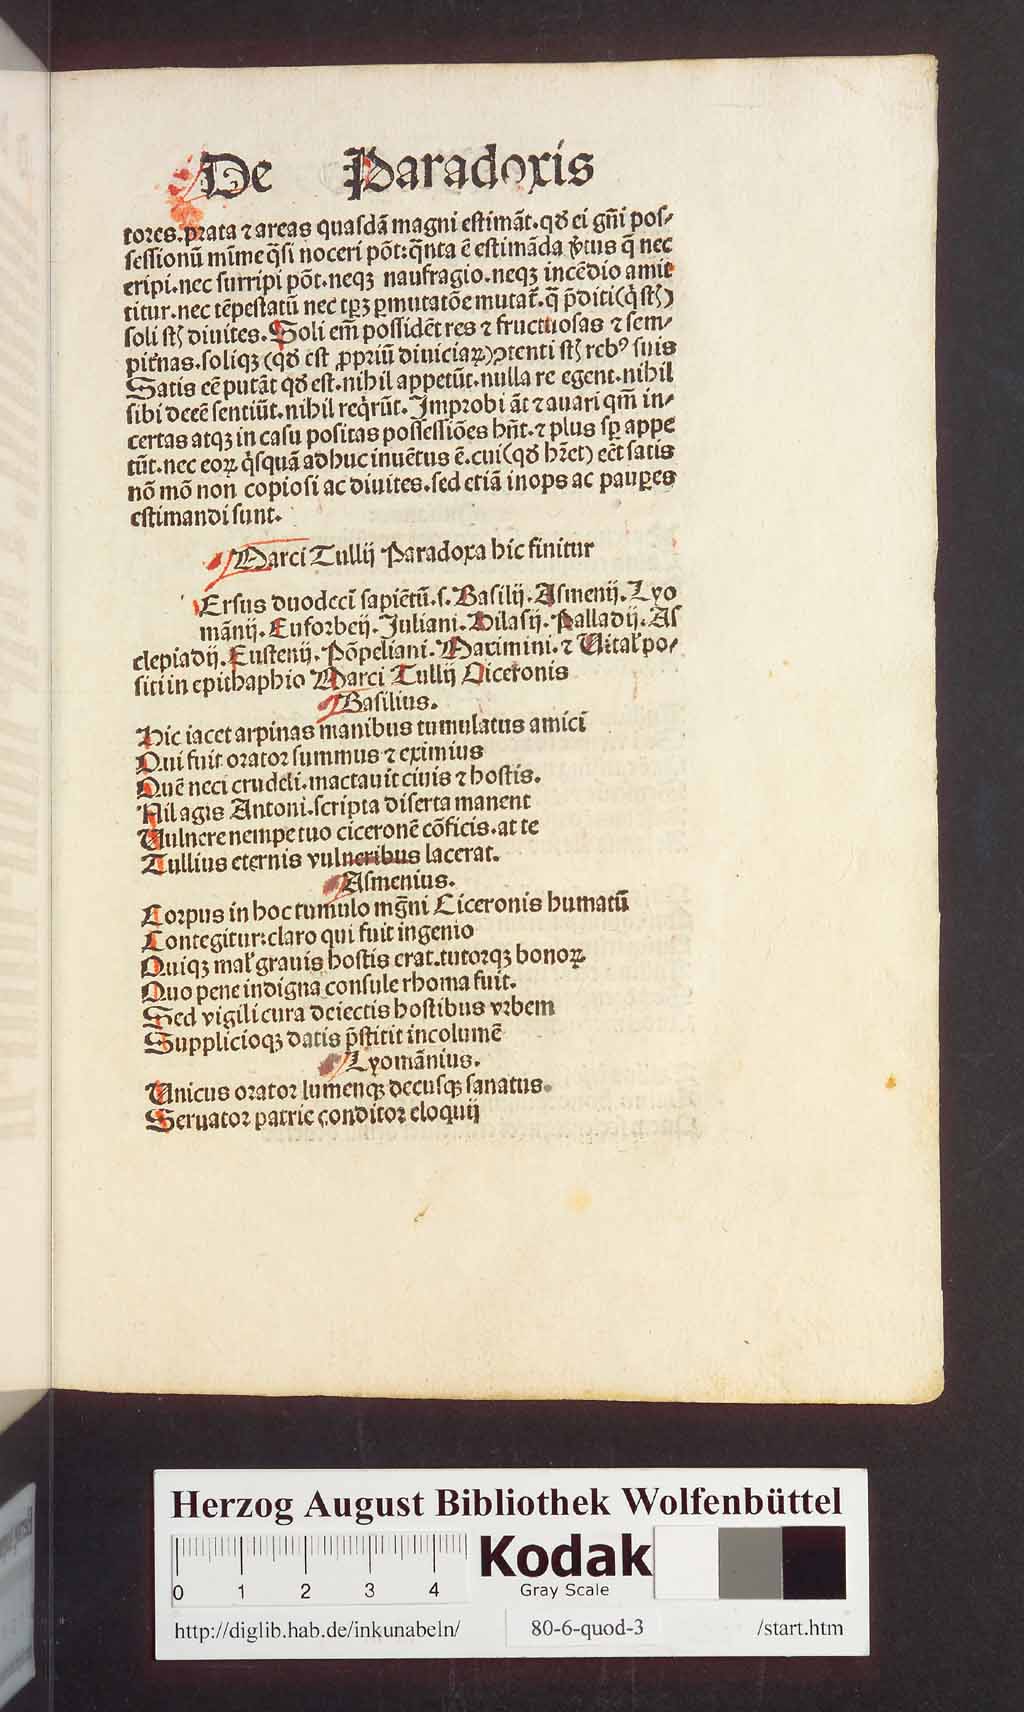 De Paradoxis
tores.prata ⁊ areas quasdã magni estimãt.qđ ei gñi pos⸗
sessionũ mĩme q̃si noceri põt:q̃nta ẽ estimãda ṽtus q̃ nec
eripi.nec surripi põt.neqꝫ naufragio.neqꝫ incẽdio amit
titur.nec tẽpestatũ nec tꝑꝫ ꝑmutatõe mutat᷑.q̃ p̃diti(q̇ st̃)
soli st̃ diuites.Soli em̃ possidẽt res ⁊ fructuosas ⁊ sem⸗
pit᷑nas.soliqꝫ (qđ est ꝓpriũ diuiciaꝝ)ꝯtenti st̃ rebꝰ suis
Satis eẽ putãt qđ est.nihil appetũt.nulla re egent.nihil
sibi deeẽ sentiũt.nihil req̇rũt.Improbi ãt ⁊ auari qm̃ in⸗
certas atqꝫ in casu positas possessiões hñt.⁊ plus sꝑ appe
tũt.nec eoꝝ q̇squã adhuc inuẽtus ẽ.cui(qđ hr̃et) eẽt satis
nõ mõ non copiosi ac diuites.sed etiã inops ac pauꝑes
estimandi sunt.
Marci Tullij Paradoxa hic finitur
Ersus duodecĩ sapiẽtũ.s.Basilij.Asmenij.Lyo
mãnij.Euforbeij.Juliani.Hilasij.Palladij.As
clepiadij.Eustenij.Põpeliani.Maximini.⁊ Vital᷑ po⸗
siti in epithaphio Marci Tullij Ciceronis
Basilius.
Hic iacet arpinas manibus tumulatus amici
Qui fuit orator summus ⁊ eximius
Quẽ neci crudeli.mactauit ciuis ⁊ hostis.
Nil agis Antoni.scripta diserta manent
Vulnere nempe tuo ciceronẽ cõficis.at te
Tullius eternis vulneribus lacerat.
Asmenius.
Corpus in hoc tumulo mg̃ni Ciceronis humatũ
Contegitur:claro qui fuit ingenio
Quiqꝫ mal᷑ grauis hostis erat.tutorqꝫ bonoꝝ
Quo pene indigna consule rhoma fuit.
Sed vigili cura deiectis hostibus vrbem
Supplicioqꝫ datis p̃stitit incolumẽ
Lyomãnius.
Unicus orator lumenqꝫ decusqꝫ sanatus.
Seruator patrie conditor eloquij
Herzog August Bibliothek Wolfenbüttel
0 1 2 3 4
Kodak
Gray Scale
http://diglib.hab.de/inkunabeln/ 80-6-quod-3 /start.htm